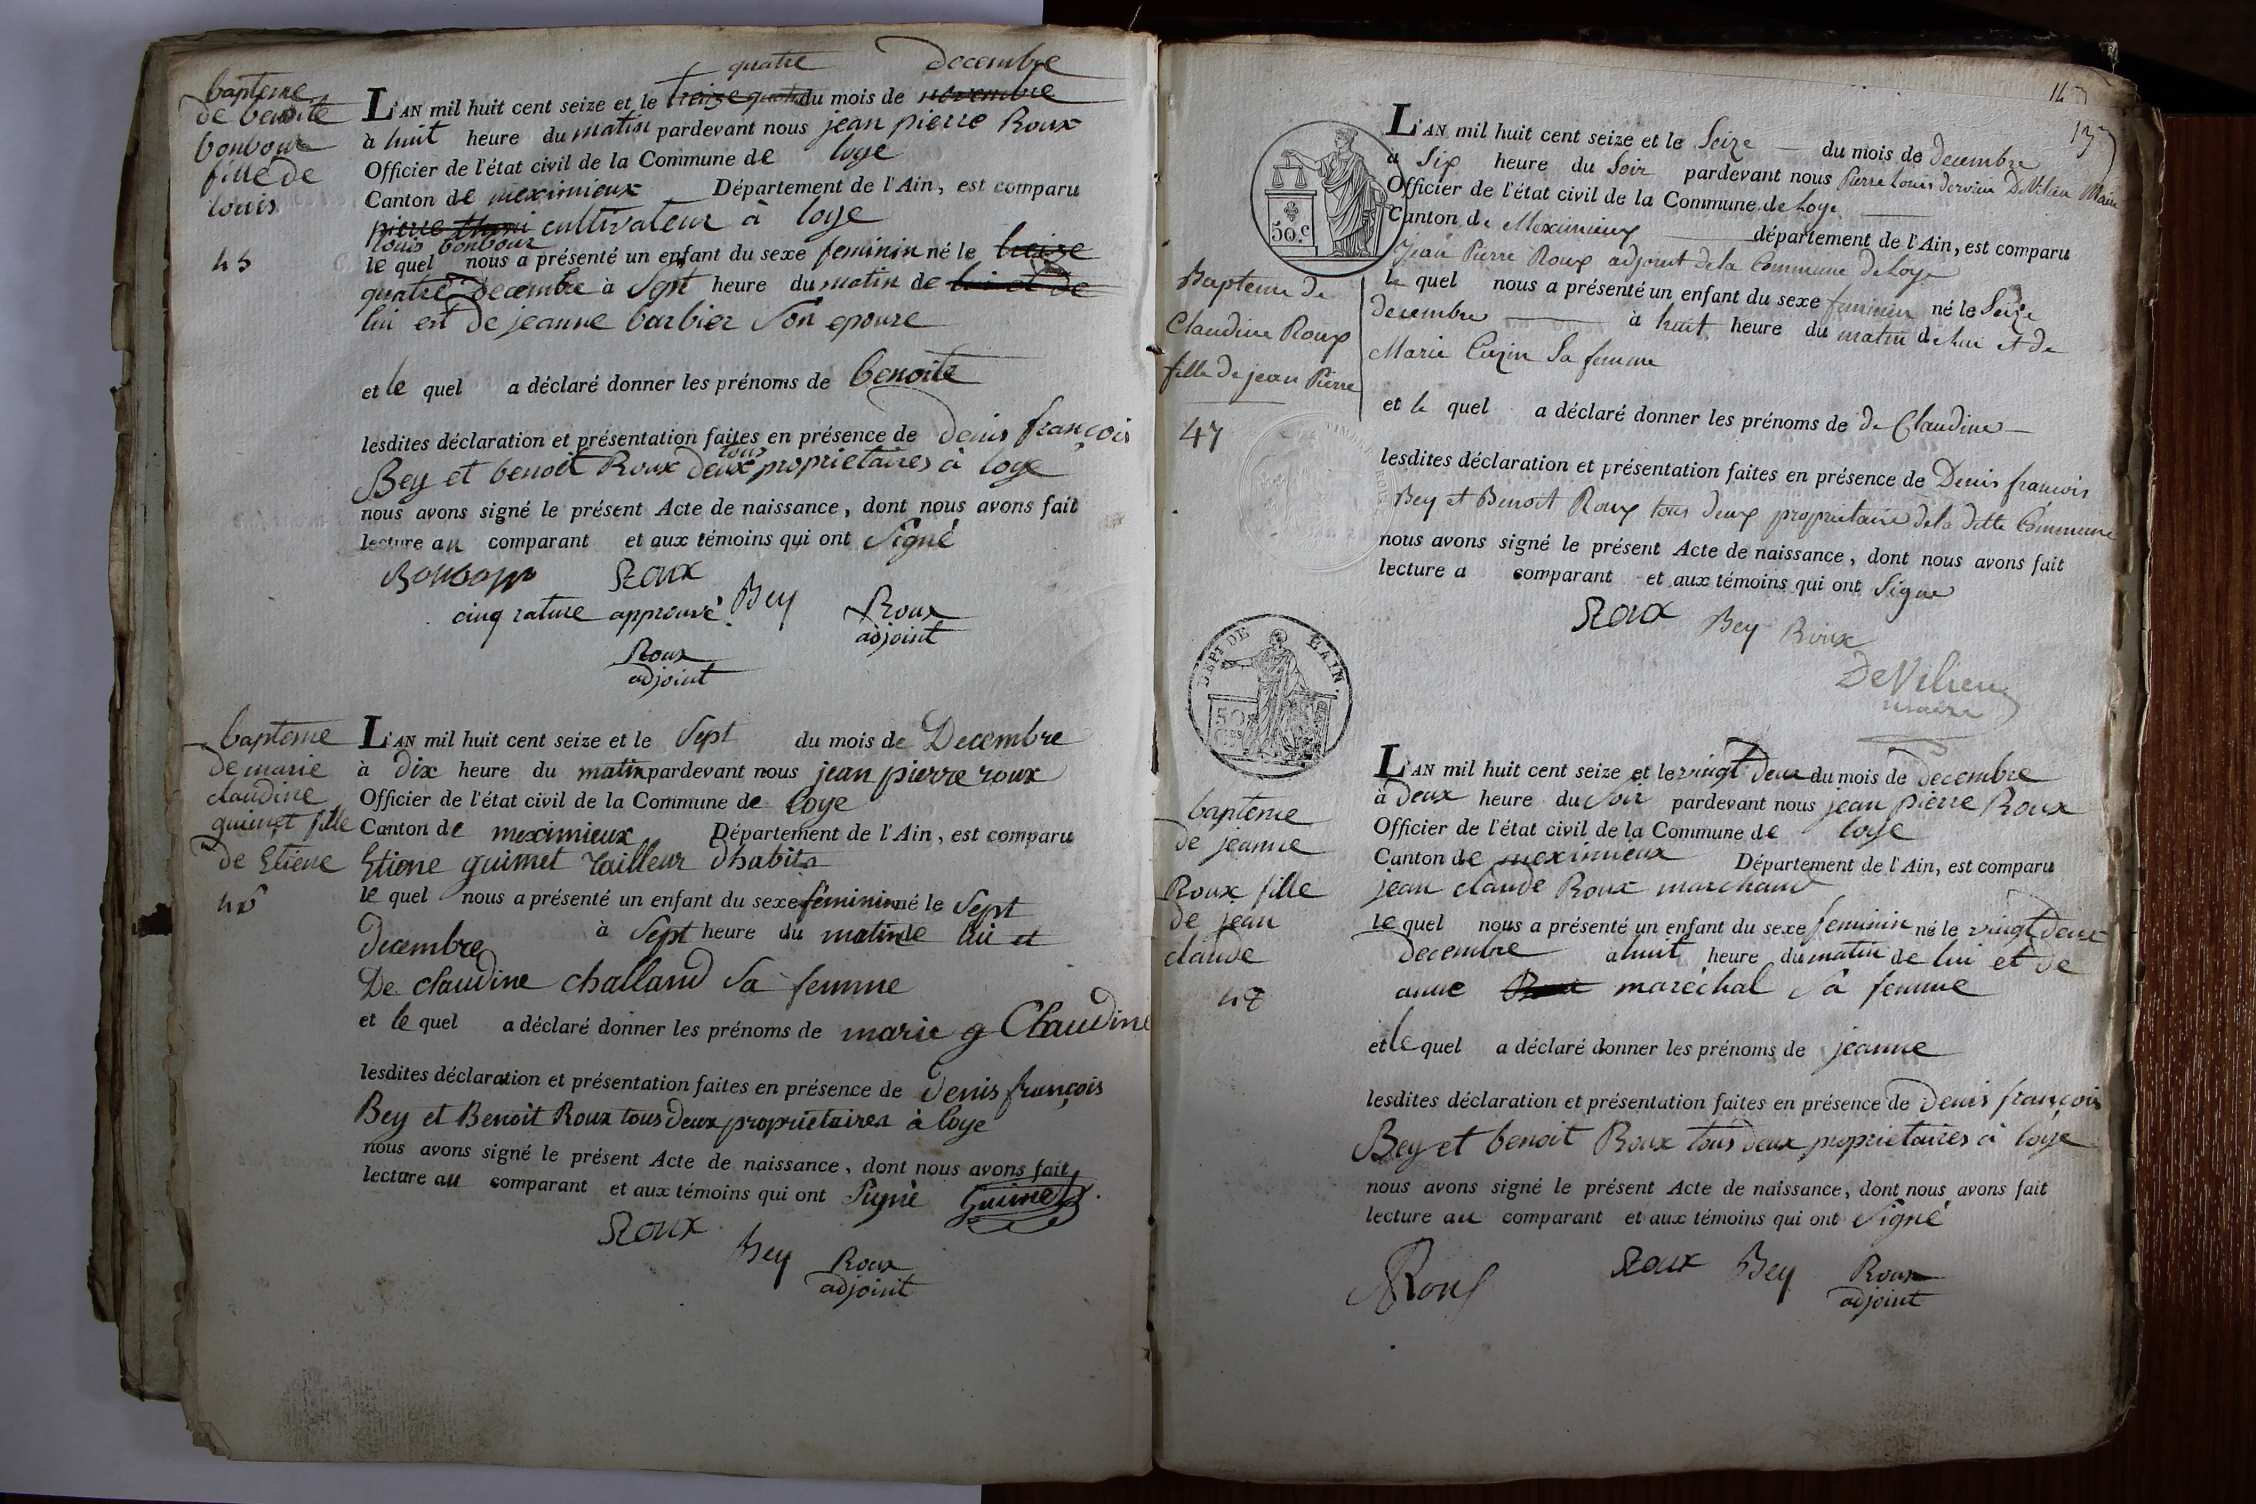 bapteme
de benoite
bonbour
fille de
louis
45
quatre decembre
L'AN mil huit cent seize et le treize quatre du mois de novembre
à huit heure du matin pardevant nous jean pierre Roux
Officier de l'état civil de la Commune de loye
Canton de meximieux Département de l'Ain, est comparu
pierre cultivateur à loye
louis bonbour
le quel nous a présenté un enfant du sexe feminin né le treize
quatre decembre à Sept heure du matin de lui et de
lui et de jeanne barbier Son epouse
et le quel a déclaré donner les prénoms de benoite
lesdites déclaration et présentation faites en présence de denis françois
tous
Bey et benoit Roux deux proprietaires à loye
nous avons signé le présent Acte de naissance, dont nous avons fait
lecture au comparant et aux témoins qui ont Signé
Roux
cinq rature approuvé Bey Roux
adjoint
Roux
adjoint
bapteme
de marie
claudine
guimet fille
de Etiene
46
L'AN mil huit cent seize et le Sept du mois de Decembre
à dix heure du matin pardevant nous jean pierre roux
Officier de l'état civil de la Commune de loye
Canton de meximieux Département de l'Ain, est comparu
Etiene guimet tailleur dhabits
le quel nous a présenté un enfant du sexe feminin né le Sept
decembre à Sept heure du matin de lui et
De claudine challand sa femme
et le quel a déclaré donner les prénoms de marie g Claudine
lesdites déclaration et présentation faites en présence de denis françois
Bey et Benoit Roux tous deux proprietaires à loye
nous avons signé le présent Acte de naissance, dont nous avons fait
lecture au comparant et aux témoins qui ont Signé Guimet
Roux Bey Roux
adjoint
50.c
Bapteme de
Claudine Roux
fille de jean Pierre
47
L'AN mil huit cent seize et le Seize du mois de decembre
à Six heure du Soir pardevant nous Pierre Louis De Vilieu Maire
Officier de l'état civil de la Commune de Loye
Canton de Meximieux département de l'Ain, est comparu
Jean Pierre Roux adjoint de la Commune de Loye
le quel nous a présenté un enfant du sexe feminin né le Seize
decembre à huit heure du matin de lui et de
Marie Cuzin Sa femme
et le quel a déclaré donner les prénoms de de Claudine
lesdites déclaration et présentation faites en présence de Denis francois
Bey et Benoit Roux tous deux proprietaire de la ditte Commune
nous avons signé le présent Acte de naissance, dont nous avons fait
lecture a comparant et aux témoins qui ont Signe
Roux Bey Roux
De Vilieu
maire
DEPT DE L'AIN.
50
CES
bapteme
de jeanne
Roux fille
de jean
claude
48
L'AN mil huit cent seize et le vingt deux du mois de decembre
à deux heure du Soir pardevant nous jean pierre Roux
Officier de l'état civil de la Commune de loye
Canton de meximieux Département de l'Ain, est comparu
jean claude Roux marchand
le quel nous a présenté un enfant du sexe feminin né le vingt deux
decembre à huit heure du matin de lui et de
anne maréchal Sa femme
et le quel a déclaré donner les prénoms de jeanne
lesdites déclaration et présentation faites en présence de Denis françois
Bey et benoit Roux tous deux proprietaires à loye
nous avons signé le présent Acte de naissance, dont nous avons fait
lecture au comparant et aux témoins qui ont Signé
Roux Roux Bey Roux
adjoint